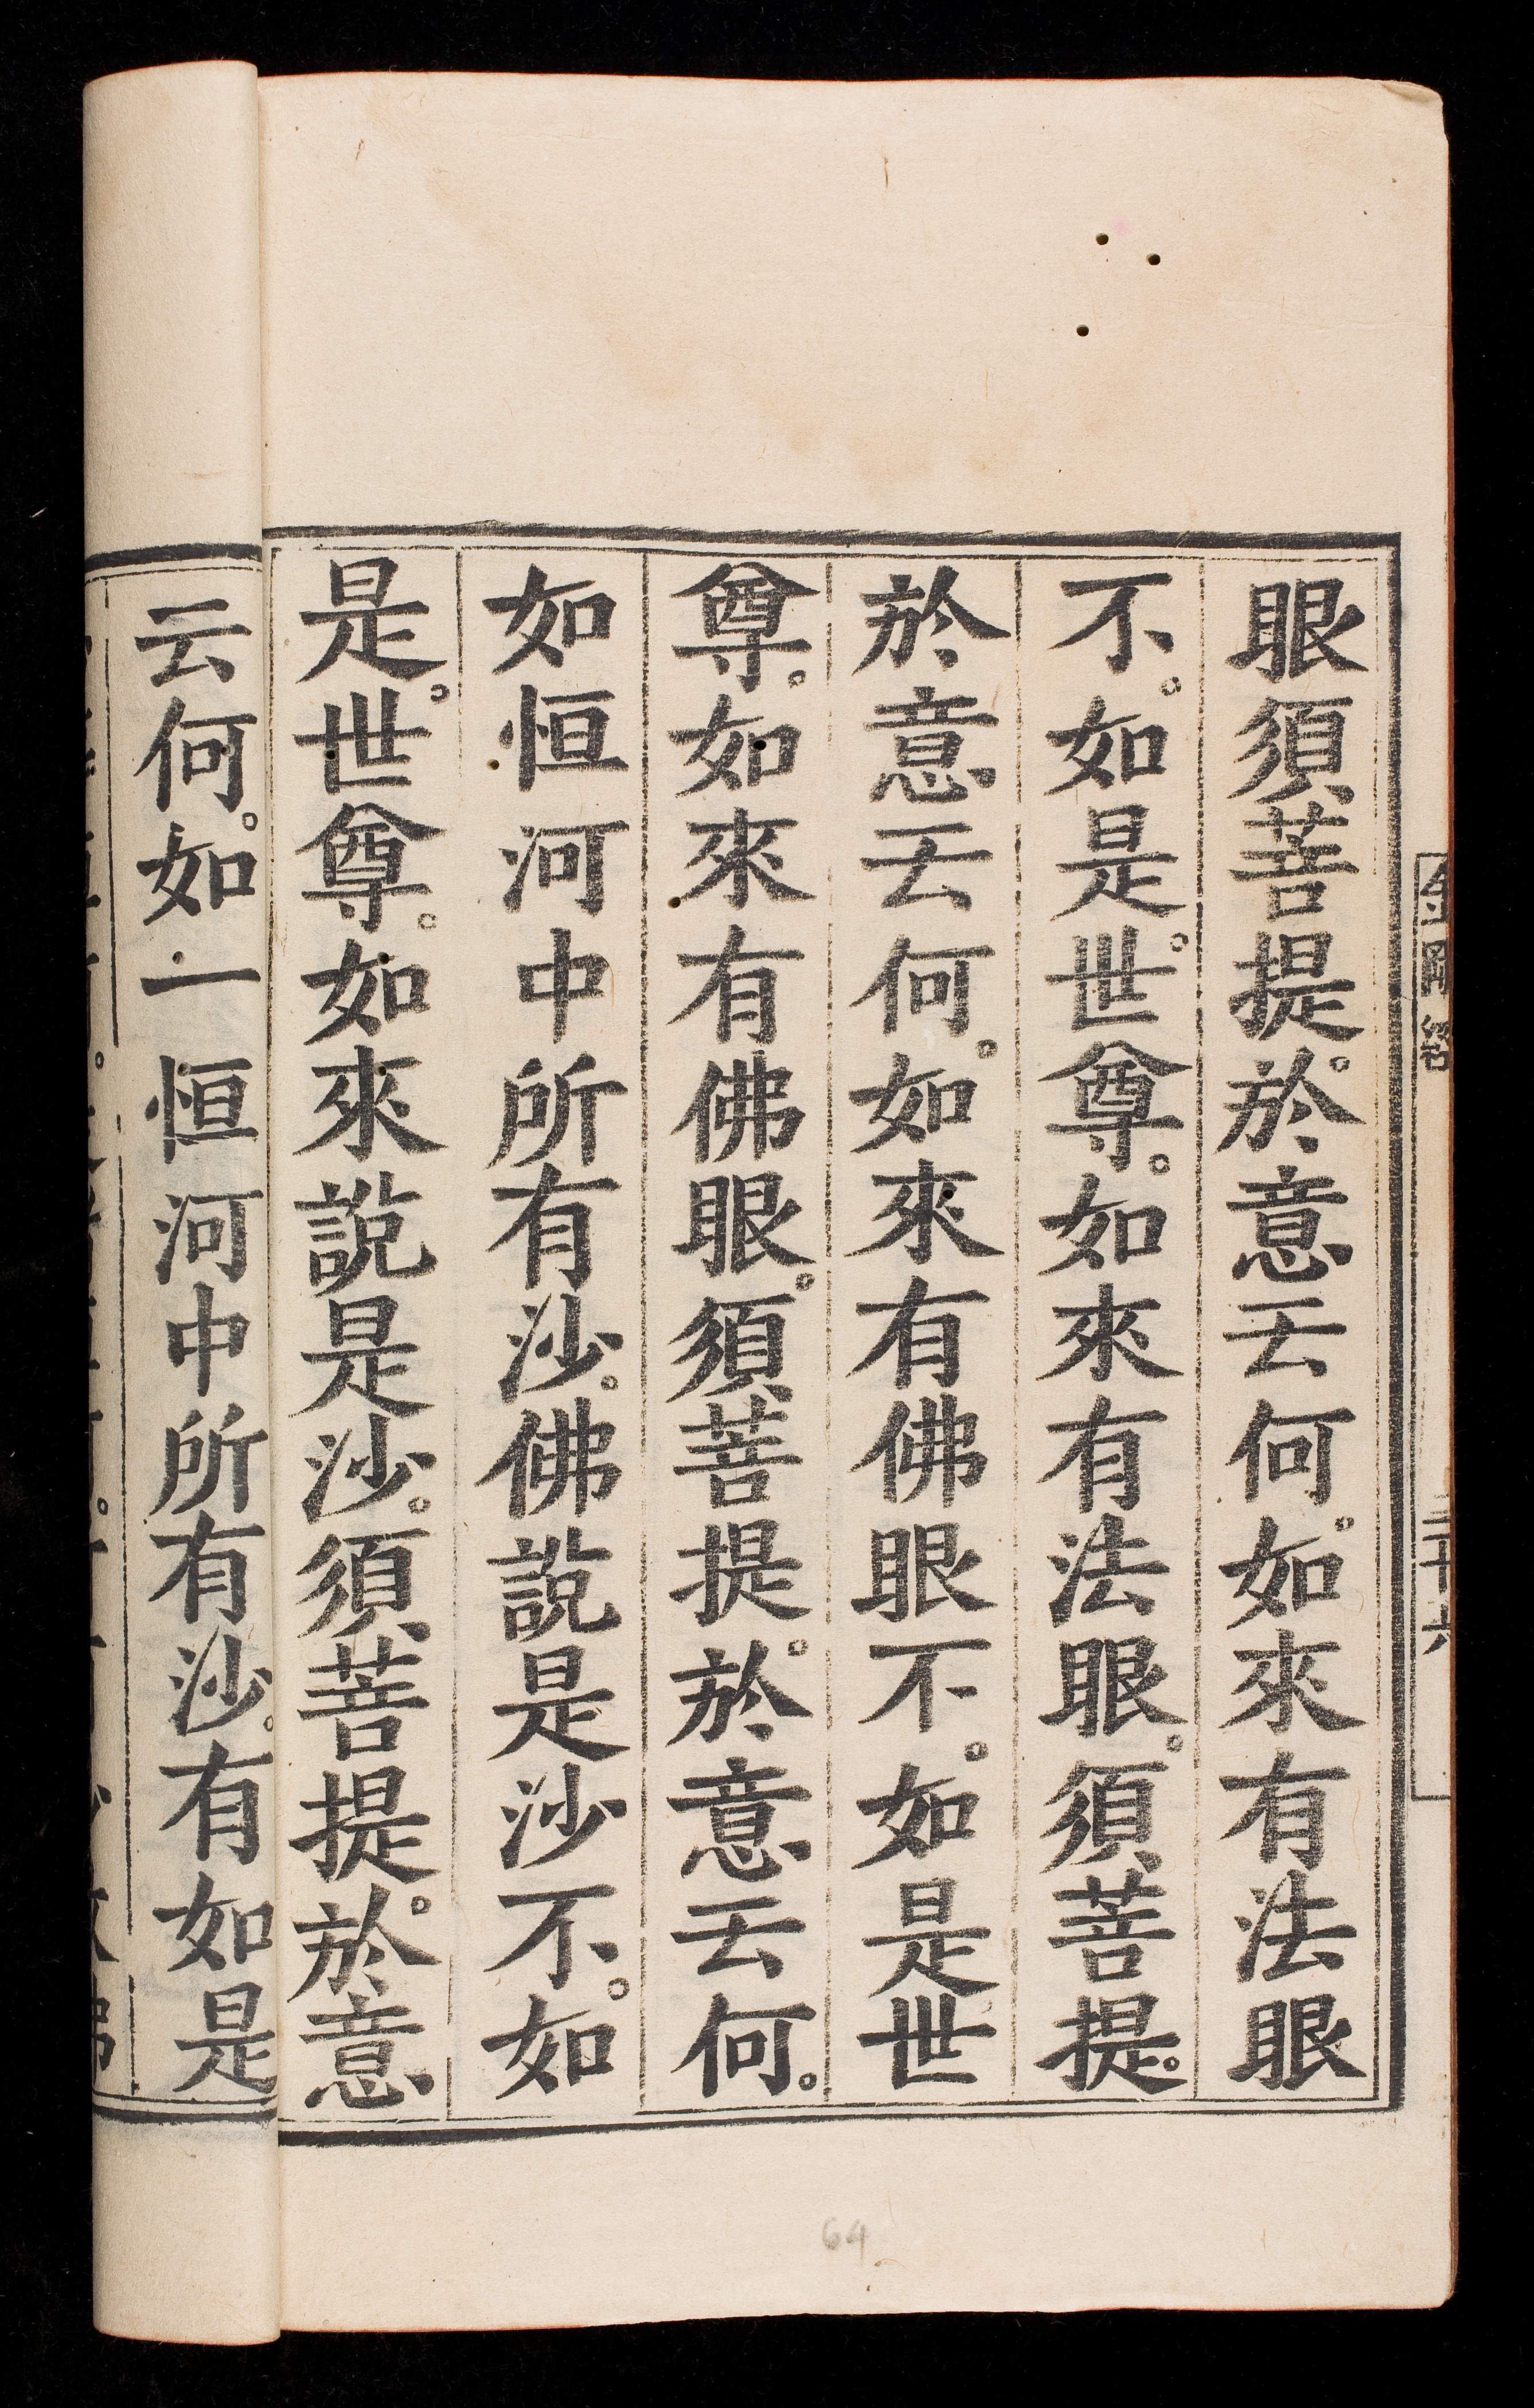 金剛經
三十六
眼須菩提。於意云何。如來有法眼
不。如是。世尊。如來有法眼。須菩提。
於意云何。如來有佛眼不。如是世
尊。如來有佛眼。須菩提。於意云何。
如恒河中所有沙。佛說是沙不。如
是。世尊。如來說是沙。須菩提。於意
云何。如一恒河中所有沙。有如是
64